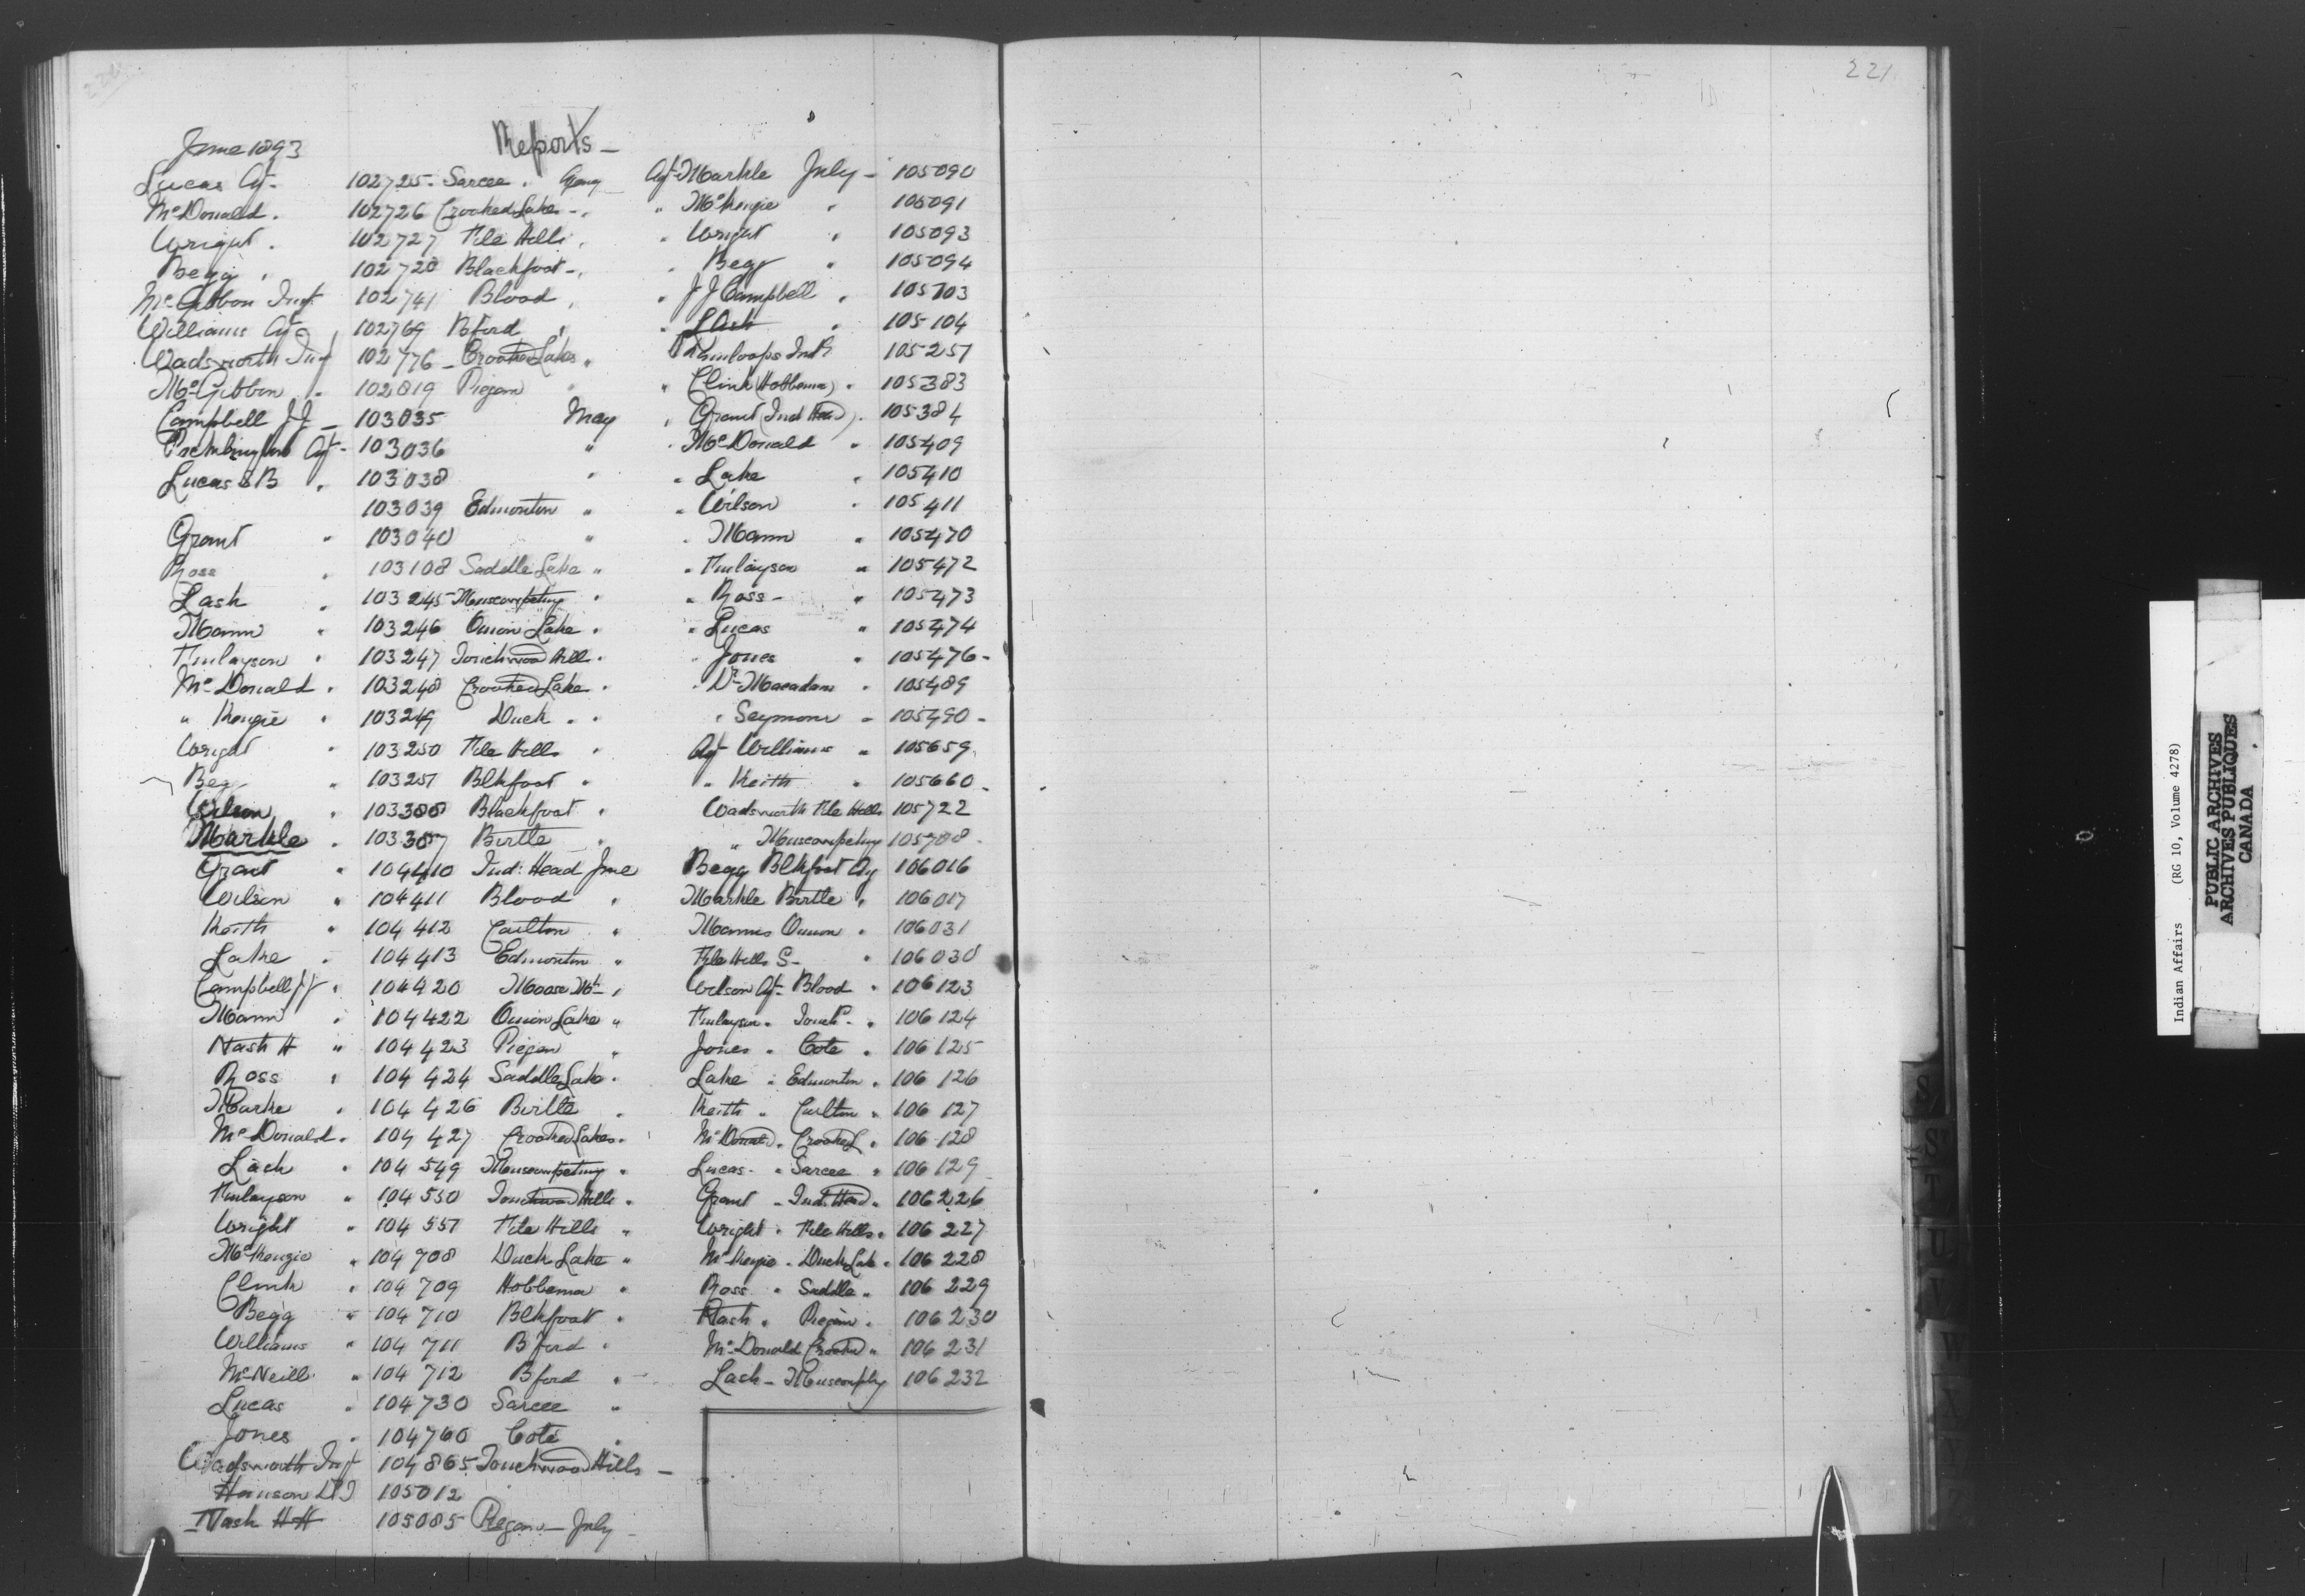 221
Reports -
June 1893
Lucas Agt - 102725 - Sarcee "
McDonald " 102726 Crooked Lakes - "
Wright " 102727 File Hills "
Begg " 102728 Blackfoot - "
McGibbon Insp 102741 Blood "
Williams Agt 102769 Bford "
Wadsworth Insp 102776 - Crooked Lakes "
McGibbon " 102819 Piegan "
Campbell J J - 103035 May
Agt - 103036 "
Lucas S B " 103038 "
103039 Edmonton "
Grant " 103040 "
Ross " 103108 Saddle Lake "
Lash " 103245 - Muscowpetung "
Mann " 103246 Onion Lake "
Finlayson " 103247 Touchwood Hills "
McDonald " 103248 Crooked Lake "
" Kenzie " 103249 Duck " "
Wright " 103250 File Hills "
Begg " 103251 Blkfoot "
Wilson " 103388 Blackfoot "
Markle " 103387 Birtle "
Grant " 104410 Ind: Head June
Wilson " 104411 Blood "
Keith " 104412 Carlton "
Lake " 104413 Edmonton "
Campbell J J " 104420 Moose Mt - "
Mann " 104422 Onion Lake "
Nash H " 104423 Piegan "
Ross " 104424 Saddle Lake "
Marke " 104426 Birtle "
McDonald " 104427 Crooked Lakes "
Lash " 104549 Muscowpetung "
Finlayson " 104550 Touchwood Hills "
Wright " 104551 File Hills "
McKenzie " 104708 Duck Lake "
Clink " 104709 Hobbema "
Begg " 104710 Blkfoot "
Williams " 104711 Bford "
McNeill " 104712 Bford "
Lucas " 104730 Sarcee "
Jones " 104760 Cote "
Wadsworth Insp 104865 Touchwood Hills -
105012
Nash H H 105085 Piegan - July -
Agt Markle July - 105090
" McKenzie " 105091
" Wright " 105093
" Begg " 105094
" J J Campbell " 105103
" Lash " 105104
Kamloops Indl 105251
" Clink (Hobbema) " 105383
" Grant (Ind Head) " 105384
" McDonald " 105409
" Lake " 105410
" Wilson " 105411
" Mann " 105470
" Finlayson " 105472
" Ross - " 105473
" Lucas " 105474
" Jones " 105476 -
" Dr Macadam " 105489
" Seymour " 105490 -
Agt Williams " 105659
" Keith " 105660 -
Wadsworth File Hills 105722
" Muscowpetung 105788 -
Begg Blkfoot Ag 106016
Markle Birtle " 106017
Manns Onion " 106031
File Hills S - " 106030
Wilson Agt - Blood " 106123
Finlayson " Touchd - " 106124
Jones " Cote " 106125
Lake " Edmonton " 106126
Keith " Carlton " 106127
McDonald " Crooked L " 106128
Lucas - " Sarcee " 106129
Grant " Ind. Head " 106226
Wright " File Hills " 106227
McKenzie " Duck Lake " 106228
Ross " Saddle " 106229
Nash " Piegan " 106230
McDonald Crooked " 106231
Lash - Muscowptg 106232
S
S
T
U
V
W
Indian Affairs (RG 10, Volume 4278)
PUBLIC ARCHIVES
ARCHIVES PUBLIQUES
CANADA